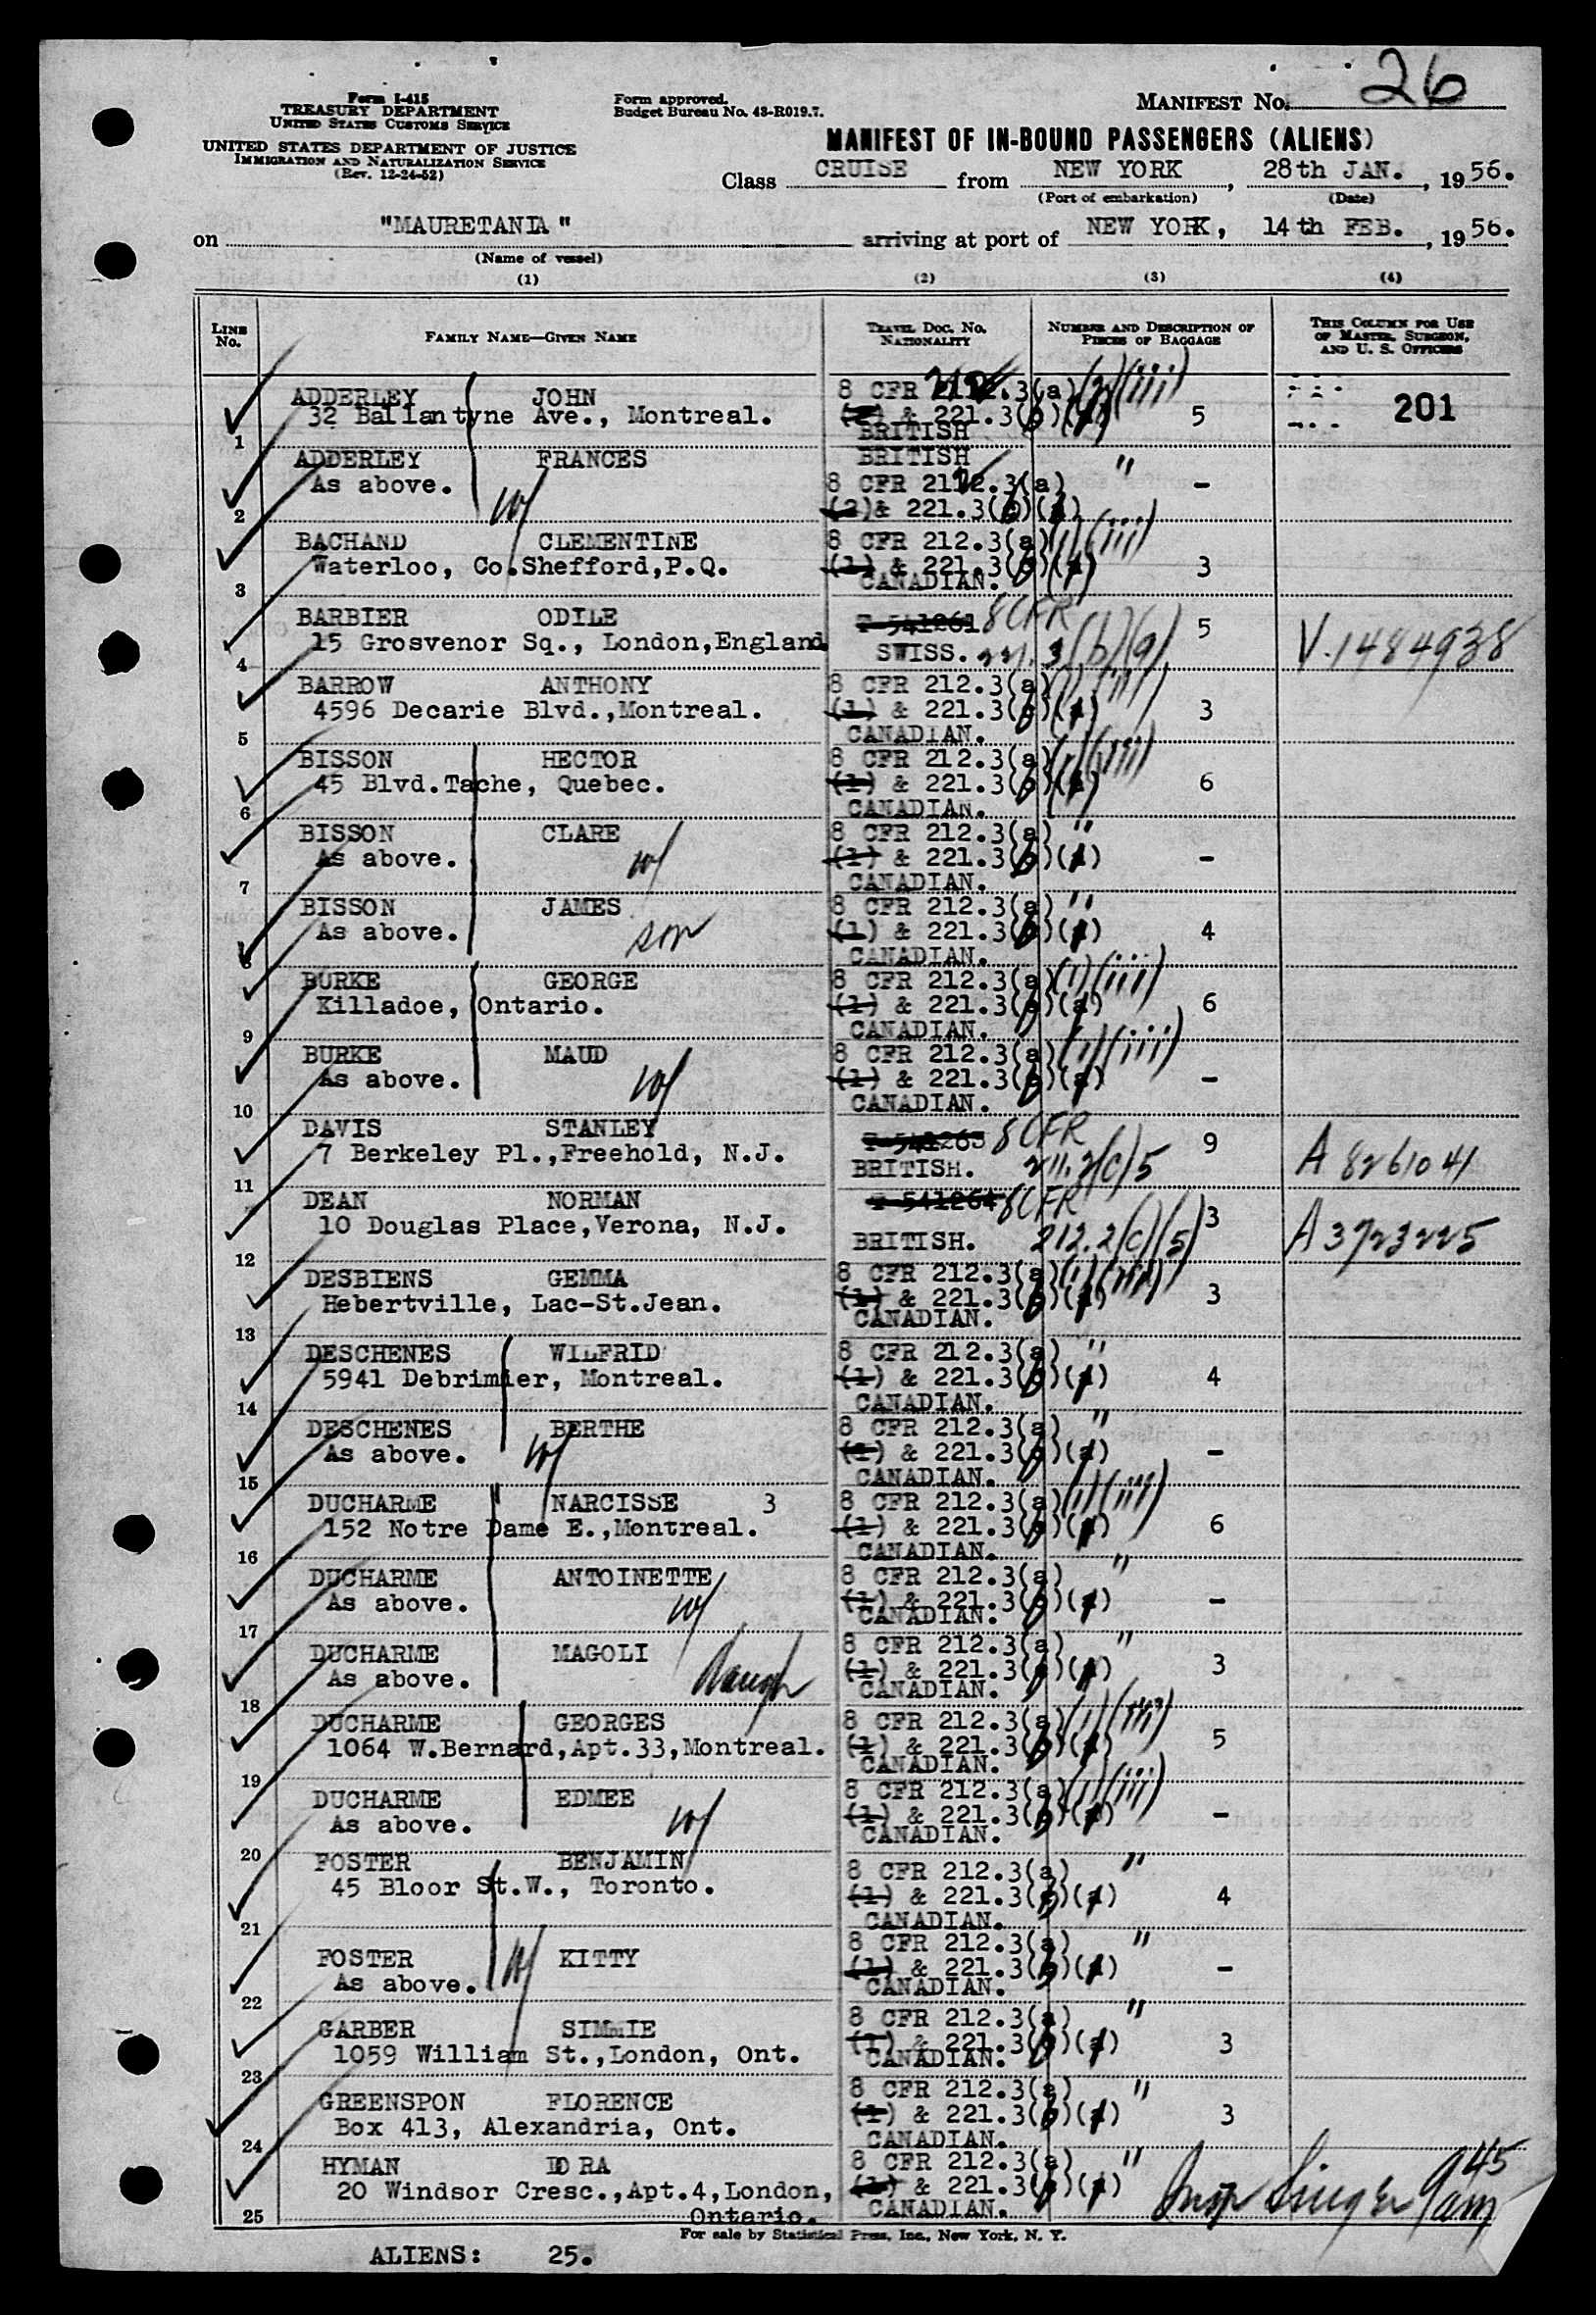 26
Form I-415
TREASURY DEPARTMENT
UNITED STATES CUSTOMS SERVICE
UNITED STATES DEPARTMENT OF JUSTICE
IMMIGRATION AND NATURALIZATION SERVICE
(Rev. 12-24-52)
Form approved.
Budget Bureau No. 43-R019.7.
MANIFEST No.
MANIFEST OF IN-BOUND PASSENGERS (ALIENS)
Class CRUISE from NEW YORK, 28th JAN., 1956.
(Port of embarkation) (Date)
on "MAURETANIA" arriving at port of NEW YORK, 14th FEB., 1956.
(Name of vessel)
(1) (2) (3) (4)
LINE No. FAMILY NAME—GIVEN NAME TRAVEL DOC. No. NATIONALITY NUMBER AND DESCRIPTION OF PIECES OF BAGGAGE THIS COLUMN FOR USE OF MASTER, SURGEON, AND U. S. OFFICERS
ADDERLEY JOHN 8 CFR 212.3(a)
32 Ballantyne Ave., Montreal. (2) & 221.3 5 201
1 BRITISH
ADDERLEY FRANCES BRITISH "
As above. 8 CFR 212.3(a) -
2 w/ (2)& 221.3
BACHAND CLEMENTINE 8 CFR 212.3(a)(1)(iii)
Waterloo, Co.Shefford,P.Q. (1) & 221.3 3
3 CANADIAN.
BARBIER ODILE T-541261 8 CFR 5
15 Grosvenor Sq., London,England. SWISS. 221.3(b)(9) V-1484938
4
BARROW ANTHONY 8 CFR 212.3(a)(1)(iii)
4596 Decarie Blvd.,Montreal. (1) & 221.3 3
5 CANADIAN.
BISSON HECTOR 8 CFR 212.3(a)(1)(iii)
45 Blvd.Tache, Quebec. (1) & 221.3 6
6 CANADIAN.
BISSON CLARE 8 CFR 212.3(a) "
As above. w/ (1) & 221.3 -
7 CANADIAN.
BISSON JAMES 8 CFR 212.3(a) "
As above. son (1) & 221.3 4
8 CANADIAN.
BURKE GEORGE 8 CFR 212.3(a)(1)(iii)
Killadoe, Ontario. (1) & 221.3 6
9 CANADIAN.
BURKE MAUD 8 CFR 212.3(a)(1)(iii)
As above. w/ (1) & 221.3 -
10 CANADIAN.
DAVIS STANLEY T-541263 8 CFR 9
7 Berkeley Pl.,Freehold, N.J. BRITISH. 211.2(c)5 A 8261041
11
DEAN NORMAN T-541264 8 CFR 3
10 Douglas Place,Verona, N.J. BRITISH. 212.2(c)(5) A3723225
12
DESBIENS GEMMA 8 CFR 212.3(a)(1)(iii)
Hebertville, Lac-St.Jean. (1) & 221.3 3
13 CANADIAN.
DESCHENES WILFRID 8 CFR 212.3(a) "
5941 Debrimier, Montreal. (1) & 221.3 4
14 CANADIAN.
DESCHENES BERTHE 8 CFR 212.3(a) "
As above. w/ (1) & 221.3 -
15 CANADIAN.
DUCHARME NARCISSE 3 8 CFR 212.3(a)(1)(iii)
152 Notre Dame E.,Montreal. (1) & 221.3 6
16 CANADIAN.
DUCHARME ANTOINETTE 8 CFR 212.3(a) "
As above. w/ (1) & 221.3 -
17 CANADIAN.
DUCHARME MAGOLI 8 CFR 212.3(a) "
As above. daugh (1) & 221.3 3
18 CANADIAN.
DUCHARME GEORGES 8 CFR 212.3(a)(1)(iii)
1064 W.Bernard,Apt.33,Montreal. (1) & 221.3 5
19 CANADIAN.
DUCHARME EDMEE 8 CFR 212.3(a)(1)(iii)
As above. w/ (1) & 221.3 -
20 CANADIAN.
FOSTER BENJAMIN 8 CFR 212.3(a) "
45 Bloor St.W., Toronto. (1) & 221.3 4
21 CANADIAN.
FOSTER w/ KITTY 8 CFR 212.3(a) "
As above. (1) & 221.3 -
22 CANADIAN.
GARBER SIMMIE 8 CFR 212.3(a) "
1059 William St.,London, Ont. (1) & 221.3 3
23 CANADIAN.
GREENSPON FLORENCE 8 CFR 212.3(a) "
Box 413, Alexandria, Ont. (1) & 221.3 3
24 CANADIAN.
HYMAN DORA 8 CFR 212.3(a) "
20 Windsor Cresc.,Apt.4,London, (1) & 221.3 Insp Singer 945 am
25 Ontario. CANADIAN.
For sale by Statistical Press, Inc., New York, N. Y.
ALIENS: 25.